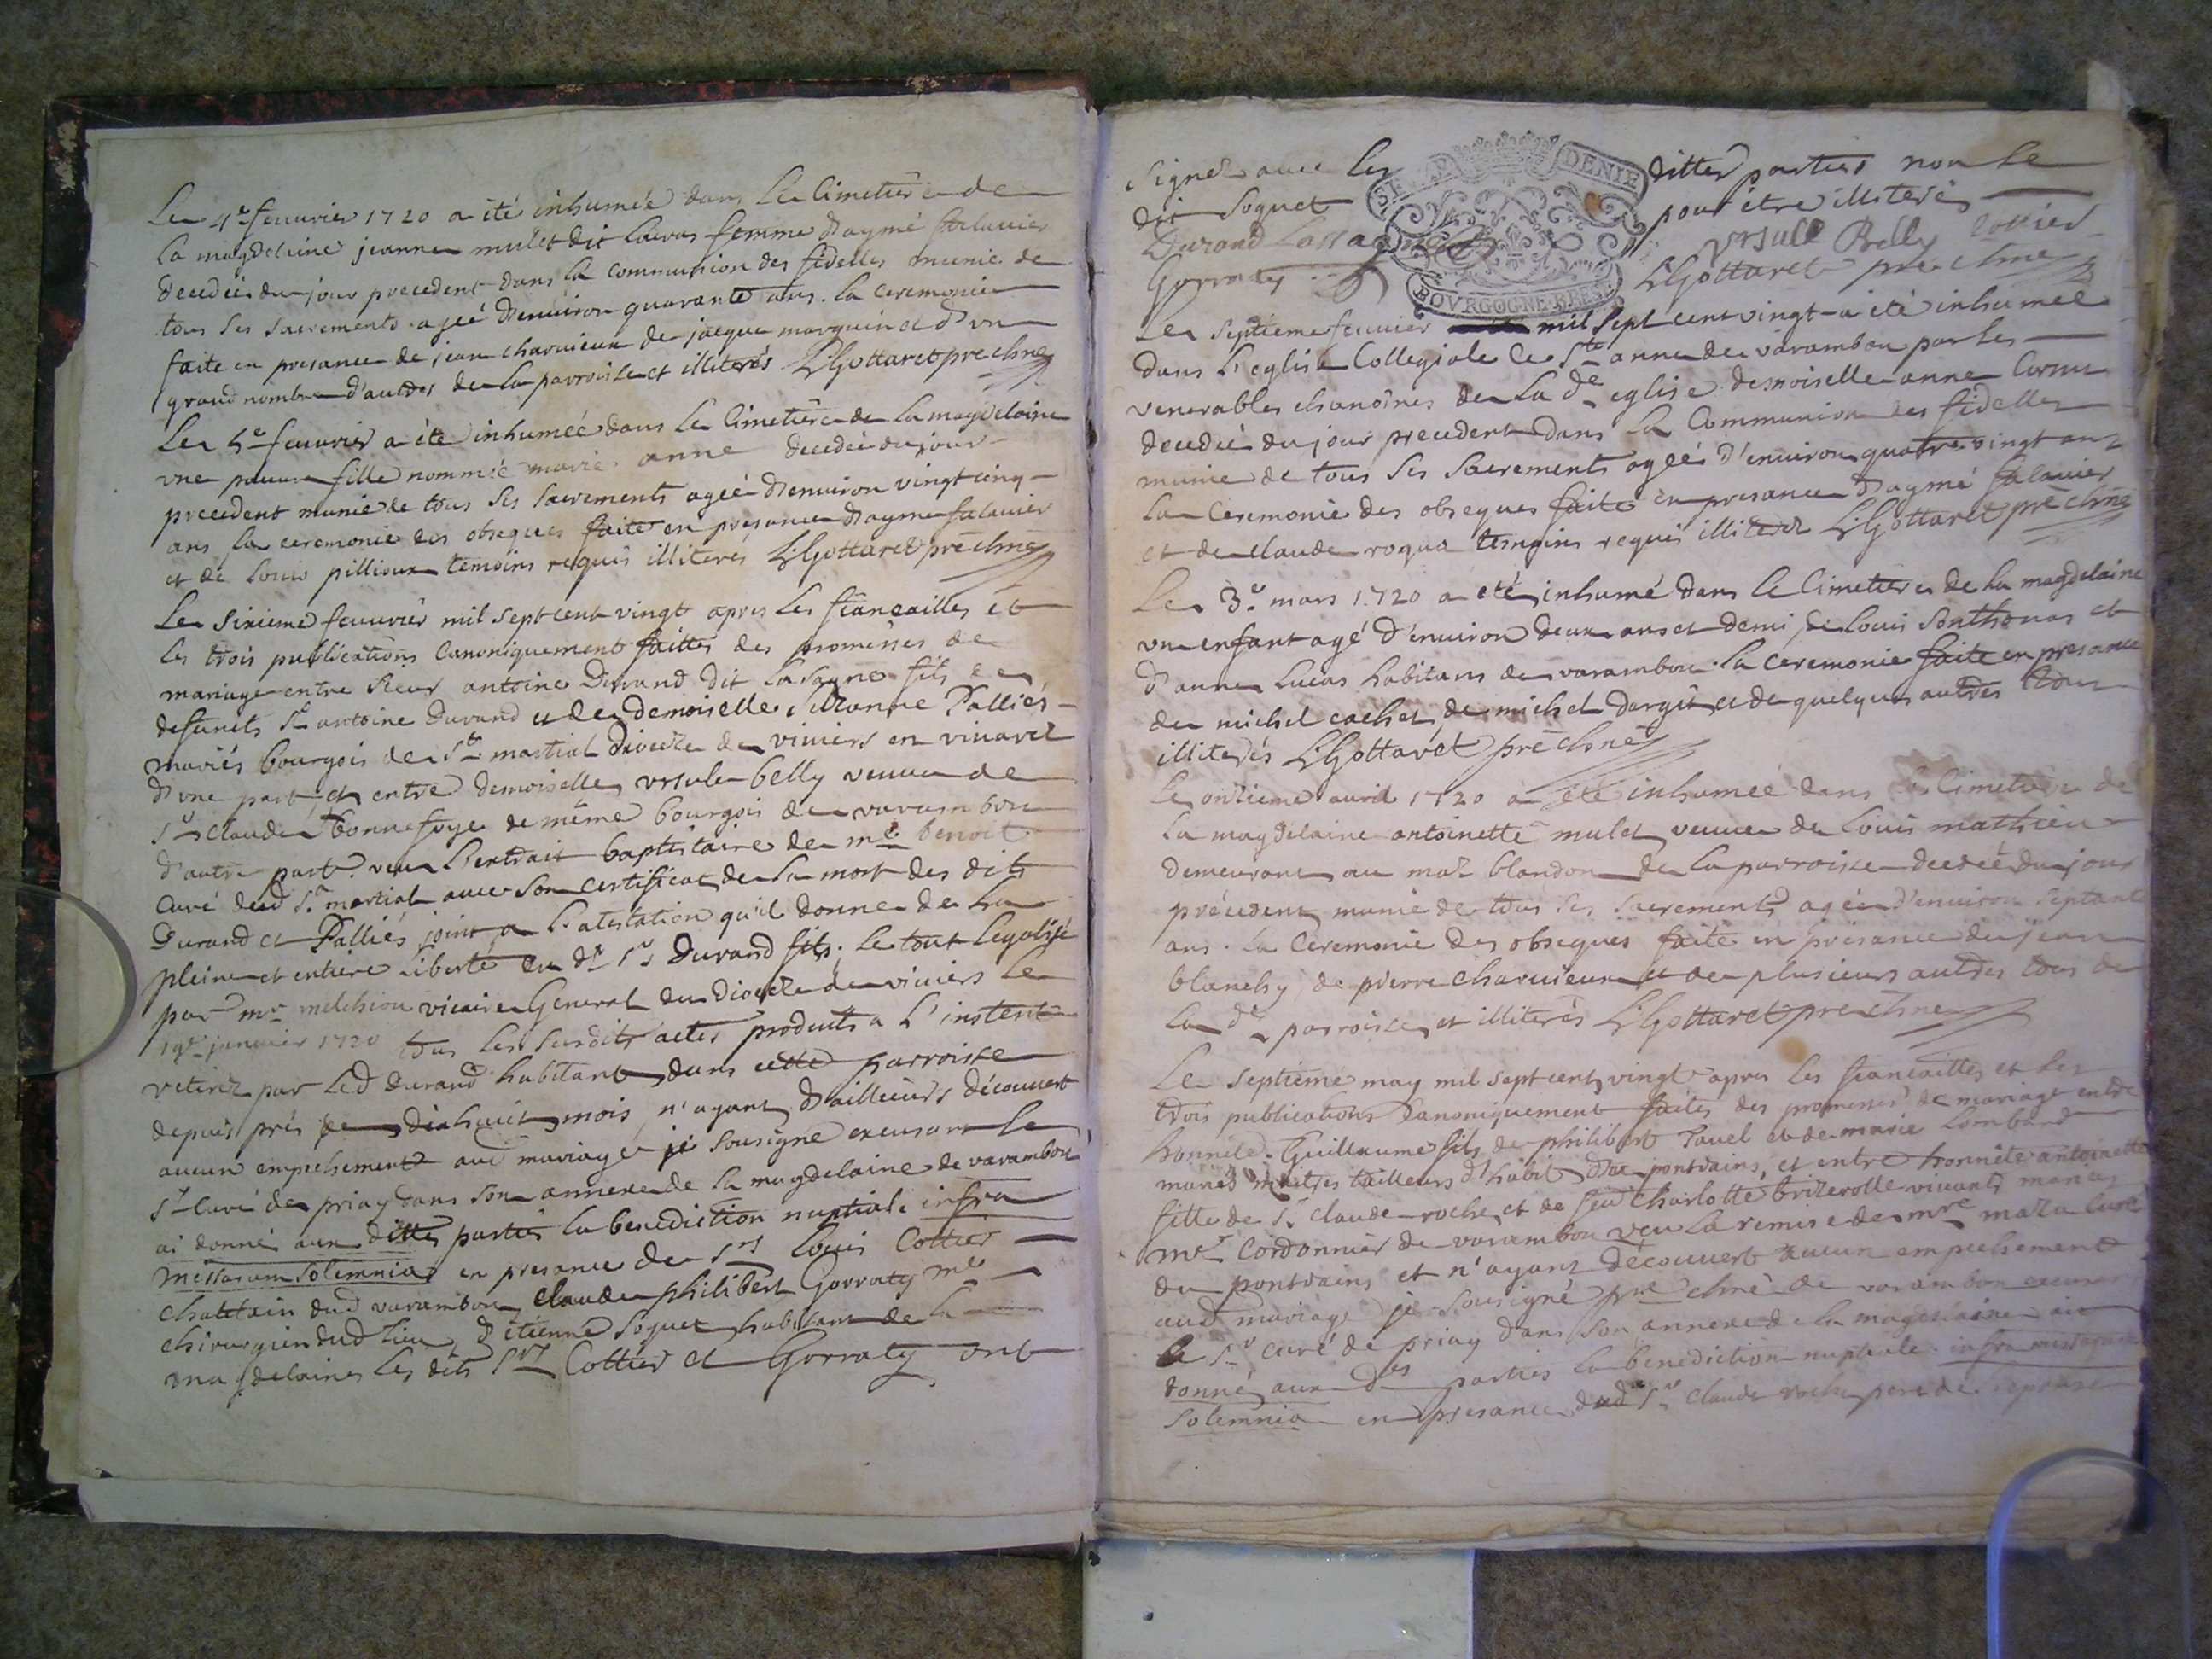 Le 4e feuurier 1720 a été inhumée dans Le Cimetiere de
la magdelaine jeanne mulet dit Laivas femme d'aymé falauier
decedée du jour precedent dans la communion des fidelles munie de
tous ses sacrements ageé d'enuiron quarante ans. la ceremonie
faite en presance de jean charuieux de jacque marguin et d'un
grand nombre d'autres de la parroisse et illiterés LGottaret pre chne
Le 5e feuurier a été inhumée dans le Cimetiere de la magdelaine
vne pauure fille nommée marie anne decedée du jour
precedent munie de tous ses sacrements ageé d'enuiron vingt cinq
ans la ceremonie des obseques faite en presance d'ayme falauier
et de Louis pillioux temoins requis illiterés LGottaret pre chne
Le sixieme feuurier mil sept cent vingt apres les fiancailles et
les trois publications Canoniquement faittes des promesses de
mariage entre sieur antoine Durand dit Lasagne fils de
defunets Sr antoine Durand et de demoiselle Suzanne Palliés
mariés bourgois de St martial Dioceze de viuiers en viuarez
d'vne part, et entre demoiselle vrsule belly veuue de
Sr Claude bonnefoye de même bourgois de varambon
d'autre part veu L'extrait baptistaire de mre benoit
Curé dud St martial auec son certificat de la mort des dits
Durand et Palliés joint a L'atestation qu'il donne de la
pleine et entiere Liberté du dt Sr Durand fils; le tout legalisé
par mre melchion vicaire General du Dioceze de viuiers le
19e januier 1720 tous les susdits actes produits a L'instent
retirez par Led durand habitant dans cette parroisse
depuis prés de dixhuit mois, n'ayant d'ailleurs découuert
aucun empechement aud mariage je sousigné excusant le
Sr Curé de priay dans son annexe de la magdelaine de varambon
ai donné aux dittes parties la benediction nuptiale infra
missarum solemnia en presance de Srs Louis Cottier
chatelain dud varambon Claude philibert Gorraty me
chirurgien dud lieu d'etienne Soquet habitant de la
magdelaine Les dits Srs Cottier et Gorraty ont
signez auec les dittes parties non le
dit Soquet pour être illiteré
Durand Lassagne vrsule Belly Cottier
Gorraty LGottaret pre chne
BOVRGOGNE BRES
Le septieme feuurier mil sept cent vingt a été inhumée
dans L'eglise Collegiale de Ste anne de varambon par les
venerables chanoines de La de eglise demoiselle anne Cornu
decedée du jour precedent dans la Communion des fidelles
munie de tous ses sacrements ageé d'enuiron quatre vingt ans
La Ceremonie des obseques faite en presance d'aymé falauier
et de claude roqua temoins requis illiterez LGottaret pre chne
Le 3e mars 1720 a eté inhumé dans le Cimetiere de la magdelaine
vn enfant agé d'enuiron deux ans et demi de Louis Sonthonas et
d'anne Lucas habitans de varambon. la ceremonie faite en presance
de michel cachet, de michel Dargit et de quelques autres tous
illiterés LGottaret pre chne
Le onzieme auril 1720 a été inhumée dans le Cimetiere de
la magdelaine antoinette mulet veuue de Louis mathieu
demeurant au maz blandon de la parroisse decedée du jour
précedent munie de tous ses sacrements ageé d'enuiron septante
ans. la Ceremonie des obseques faite en presance de jean
blanchy de pierre charuieux et de plusieurs autres tous de
la de parroisse et illiterés LGottaret pre chne
Le septieme may mil sept cent vingt apres les fiancailles et les
trois publications canoniquement faites des promesses de mariage entre
honnête Guillaume fils de philibert Tauel et de marie Lombard
mariés maitres tailleurs d'habit du pontdains, et entre honnête antoinette
fille de Sr claude roche et de feu Charlotte brizerolle viuants mariés
mre Cordonnier de varambon veu la remise de mre maza curé
du pontdains et n'ayant découuert aucun empechement
aud mariage je sousigné pre chne de varambon excusant
le Sr curé de priay dans son annexe de la magdelaine ai
donné aux des parties la benediction nuptiale infra missarum
solemnia en presance dud Sr claude roche pere de l'epouse